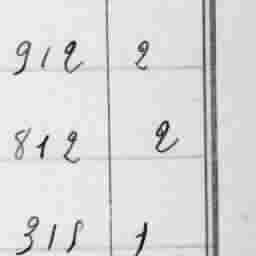 912 2
812 2
315 1